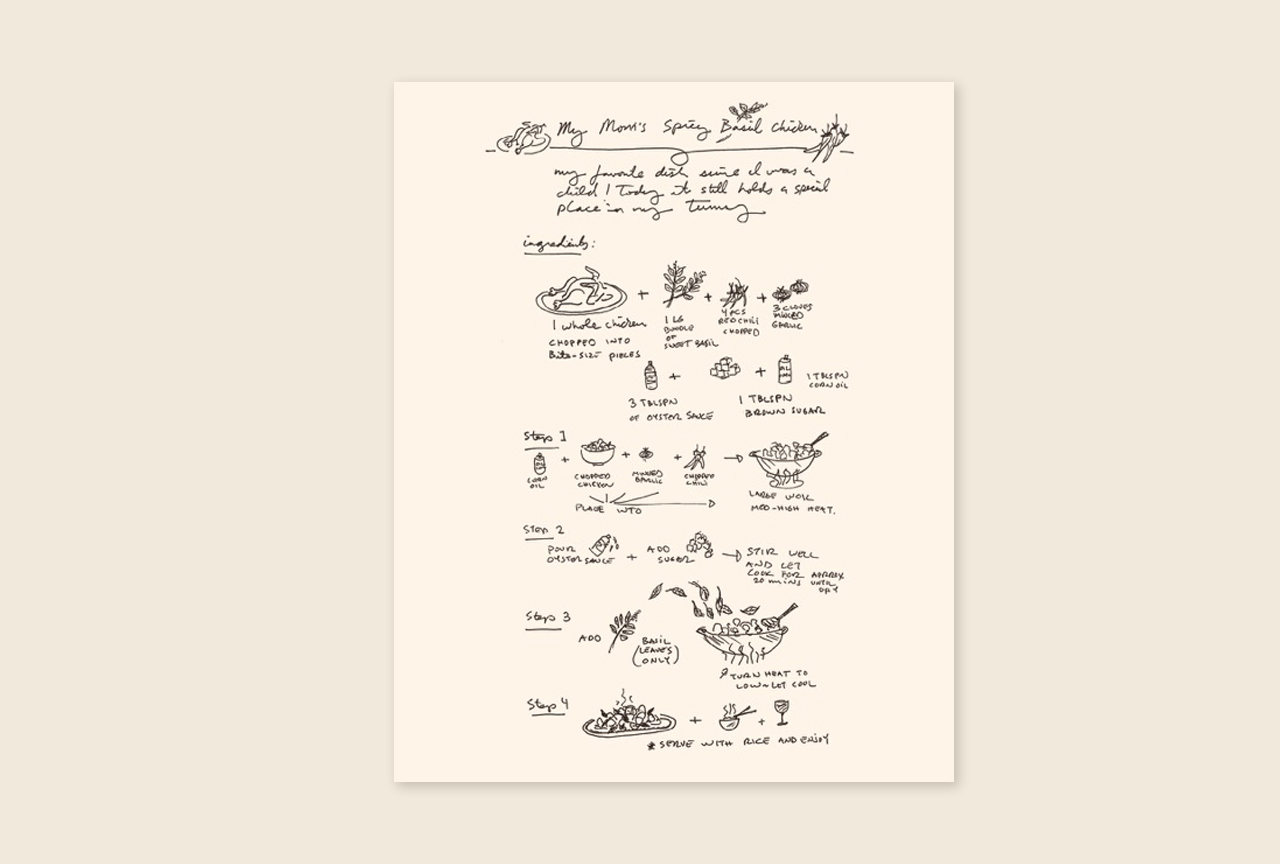 My Mom's Spicy Basil Chicken
my favorite dish since I was a
child! Today it still holds a special
place in my Tummy
ingredients:
1 whole chicken
CHOPPED INTO
Bite-SIZE PIECES
1 LG
BUNDLE
OF
SWEET BASIL
4 PCS
RED CHILI
CHOPPED
3 CLOVES
MINCED
GARLIC
3 TBLSPN
OF OYSTER SAUCE
1 TBLSPN
BROWN SUGAR
1 TBLSPN
CORN OIL
Step 1
CORN
OIL
CHOPPED
CHICKEN
MINCED
GARLIC
CHOPPED
CHILI
PLACE INTO
LARGE WOK
MED-HIGH HEAT.
Step 2
POUR
OYSTER SAUCE
ADD
SUGAR
STIR WELL
AND LET
COOK FOR APPROX
20 mins UNTIL
DRY
Step 3
ADD
BASIL
(LEAVES
ONLY)
TURN HEAT TO
LOW & LET COOL
Step 4
* SERVE WITH RICE AND ENJOY